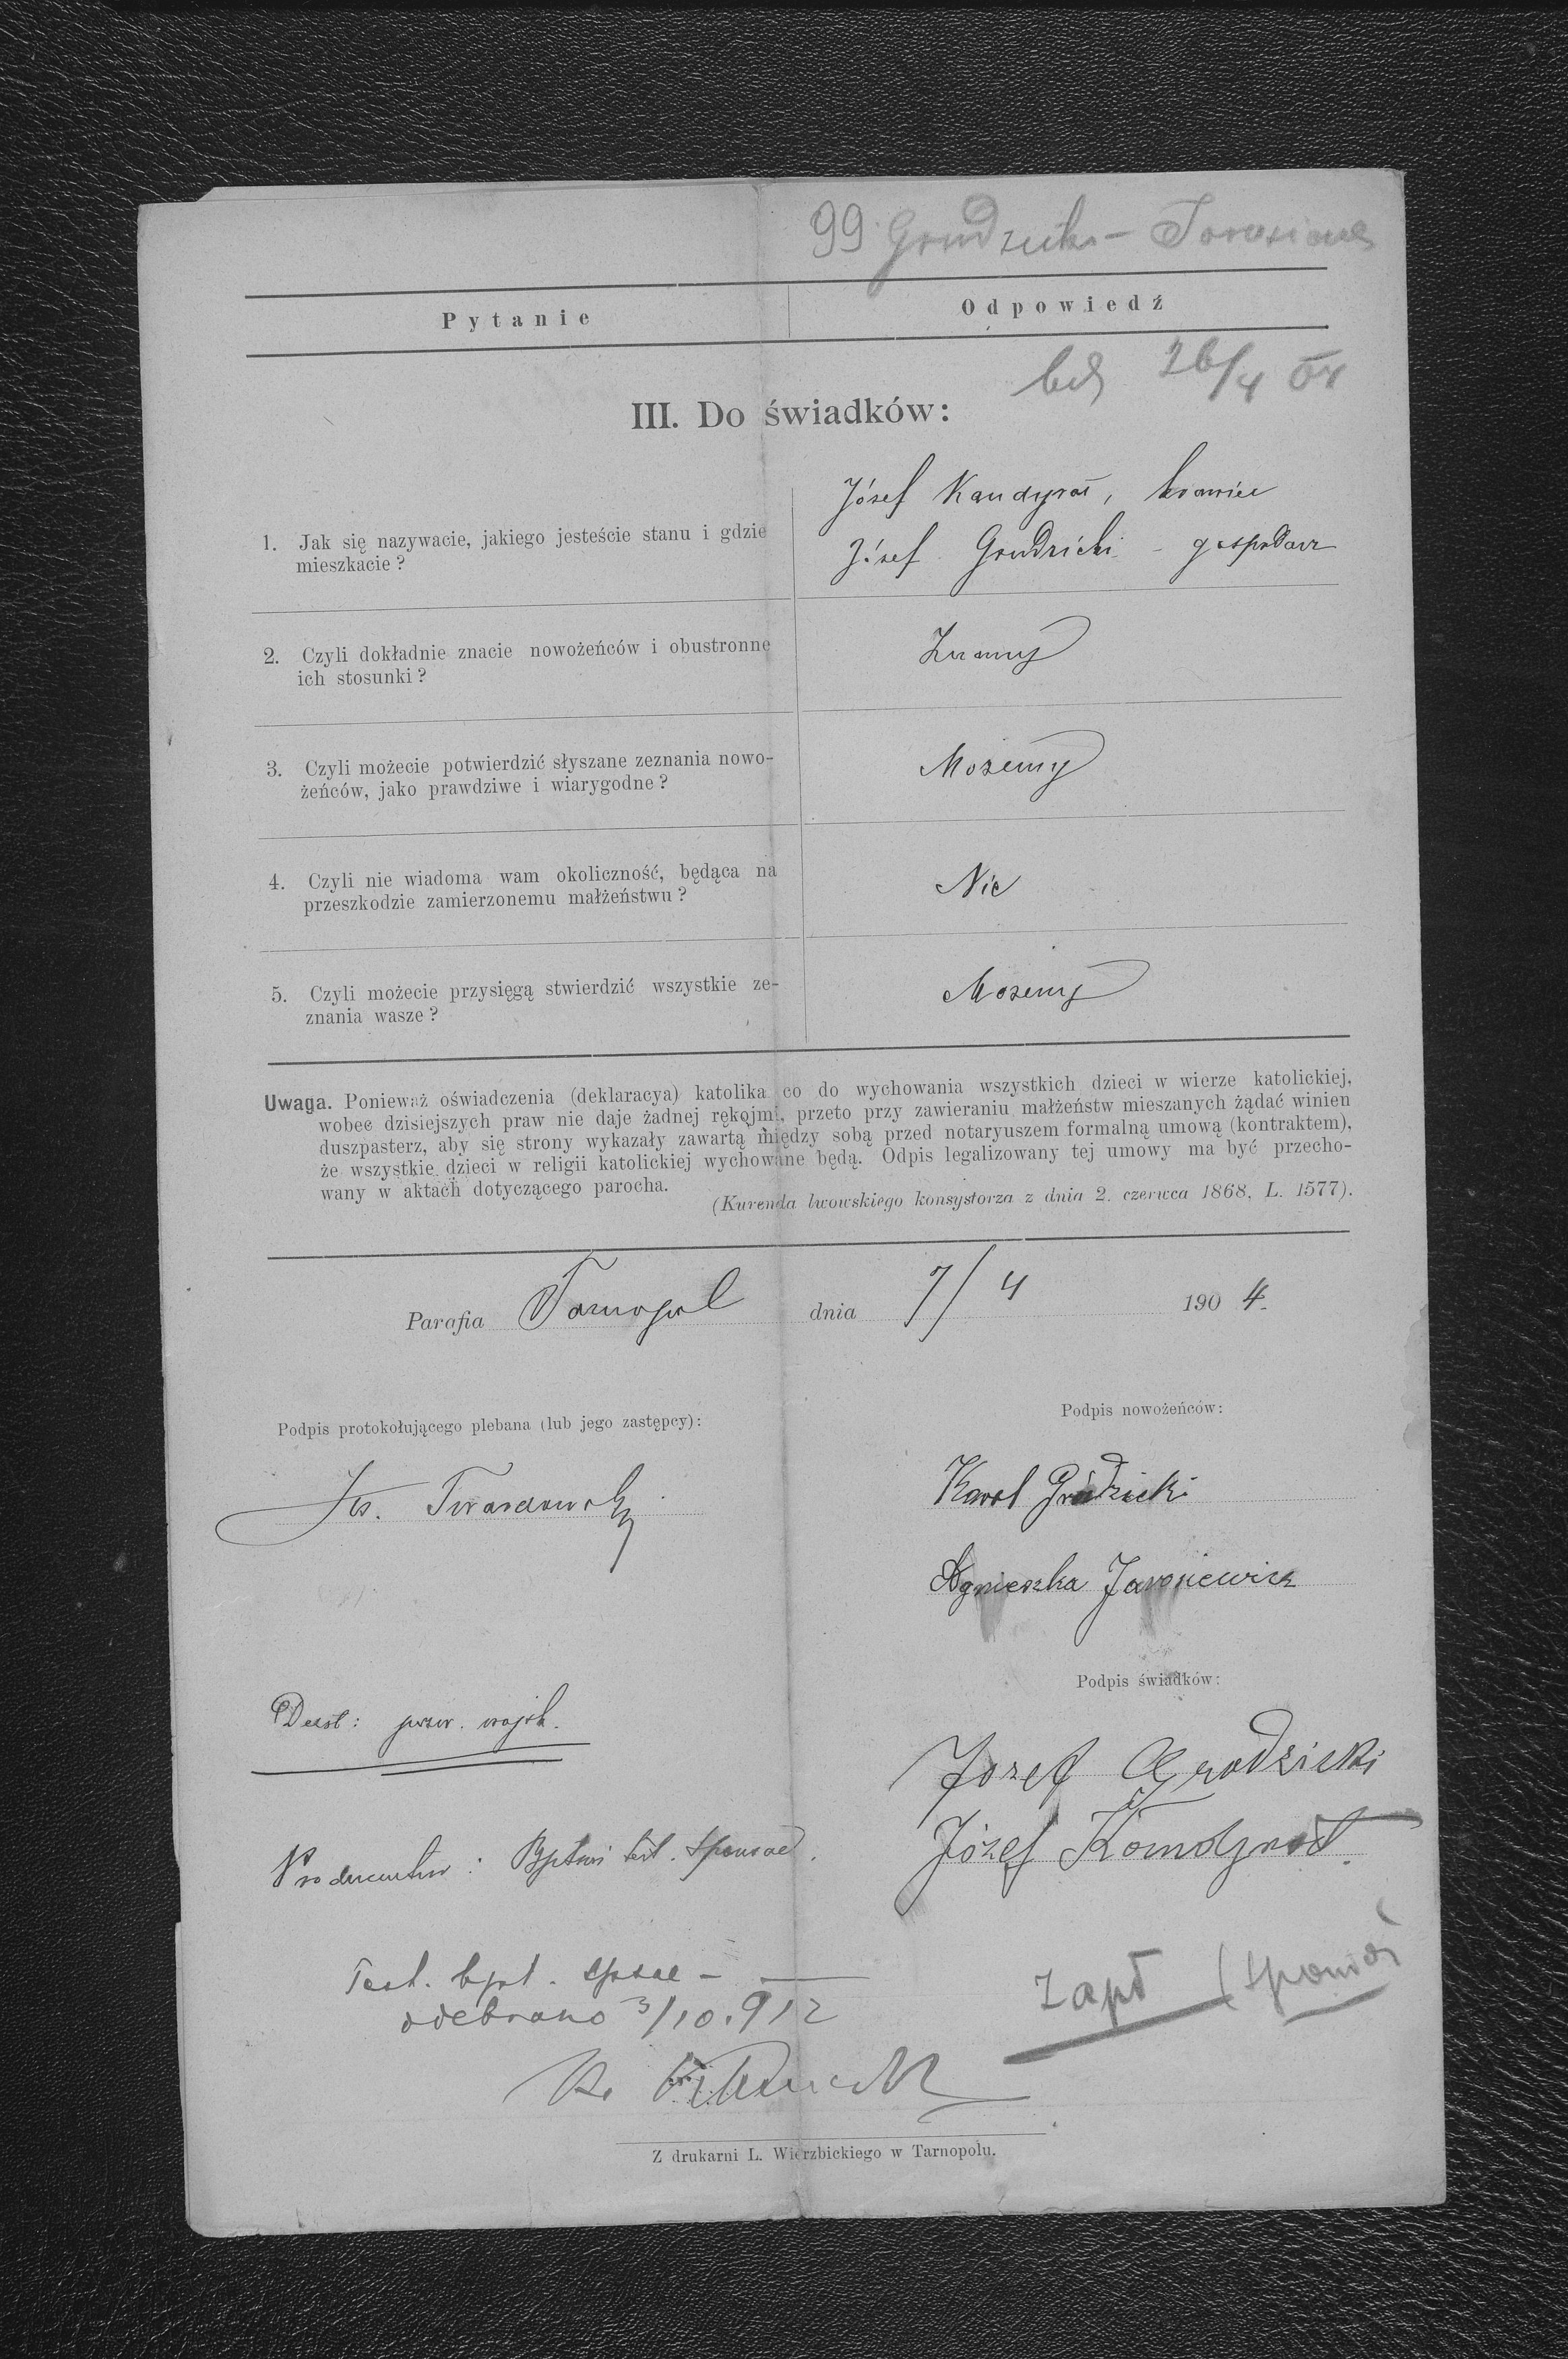 99 Grudzicki –
Pytanie
Odpowiedź
26/4 04
III. Do świadków:
Józef Kandyrał, krawiec
1. Jak się nazywacie, jakiego jesteście stanu i gdzie
mieszkacie?
Józef Grudzicki - gospodarz
2. Czyli dokładnie znacie nowożeńców i obustronne
ich stosunki?
Znamy
3. Czyli możecie potwierdzić słyszane zeznania nowo-
żeńców, jako prawdziwe i wiarygodne?
Możemy
4. Czyli nie wiadoma wam okoliczność, będąca na
przeszkodzie zamierzonemu małżeństwu?
Nie
5. Czyli możecie przysięgą stwierdzić wszystkie ze-
znania wasze?
Możemy
Uwaga. Ponieważ oświadczenia (deklaracya) katolika co do wychowania wszystkich dzieci w wierze katolickiej,
wobec dzisiejszych praw nie daje żadnej rękojmi, przeto przy zawieraniu małżeństw mieszanych żądać winien
duszpasterz, aby się strony wykazały zawartą między sobą przed notaryuszem formalną umową (kontraktem),
że wszystkie dzieci w religii katolickiej wychowane będą. Odpis legalizowany tej umowy ma być przecho-
wany w aktach dotyczącego parocha.
(Kurenda lwowskiego konsystorza z dnia 2. czerwca 1868, L. 1577).
Parafia Tarnopol dnia 7/4 1904.
Podpis protokołującego plebana (lub jego zastępcy):
Podpis nowożeńców:
Ks. Twardowski
Karol Grudzicki
Agnieszka Jarosiewicz
Podpis świadków:
Deest: pozw. wojsk.
Jozef Grodzicki
Józef Komdyrał.
Test. bpt. spsae –
odebrano 3/10.912
Zapł
Z drukarni L. Wierzbickiego w Tarnopolu.